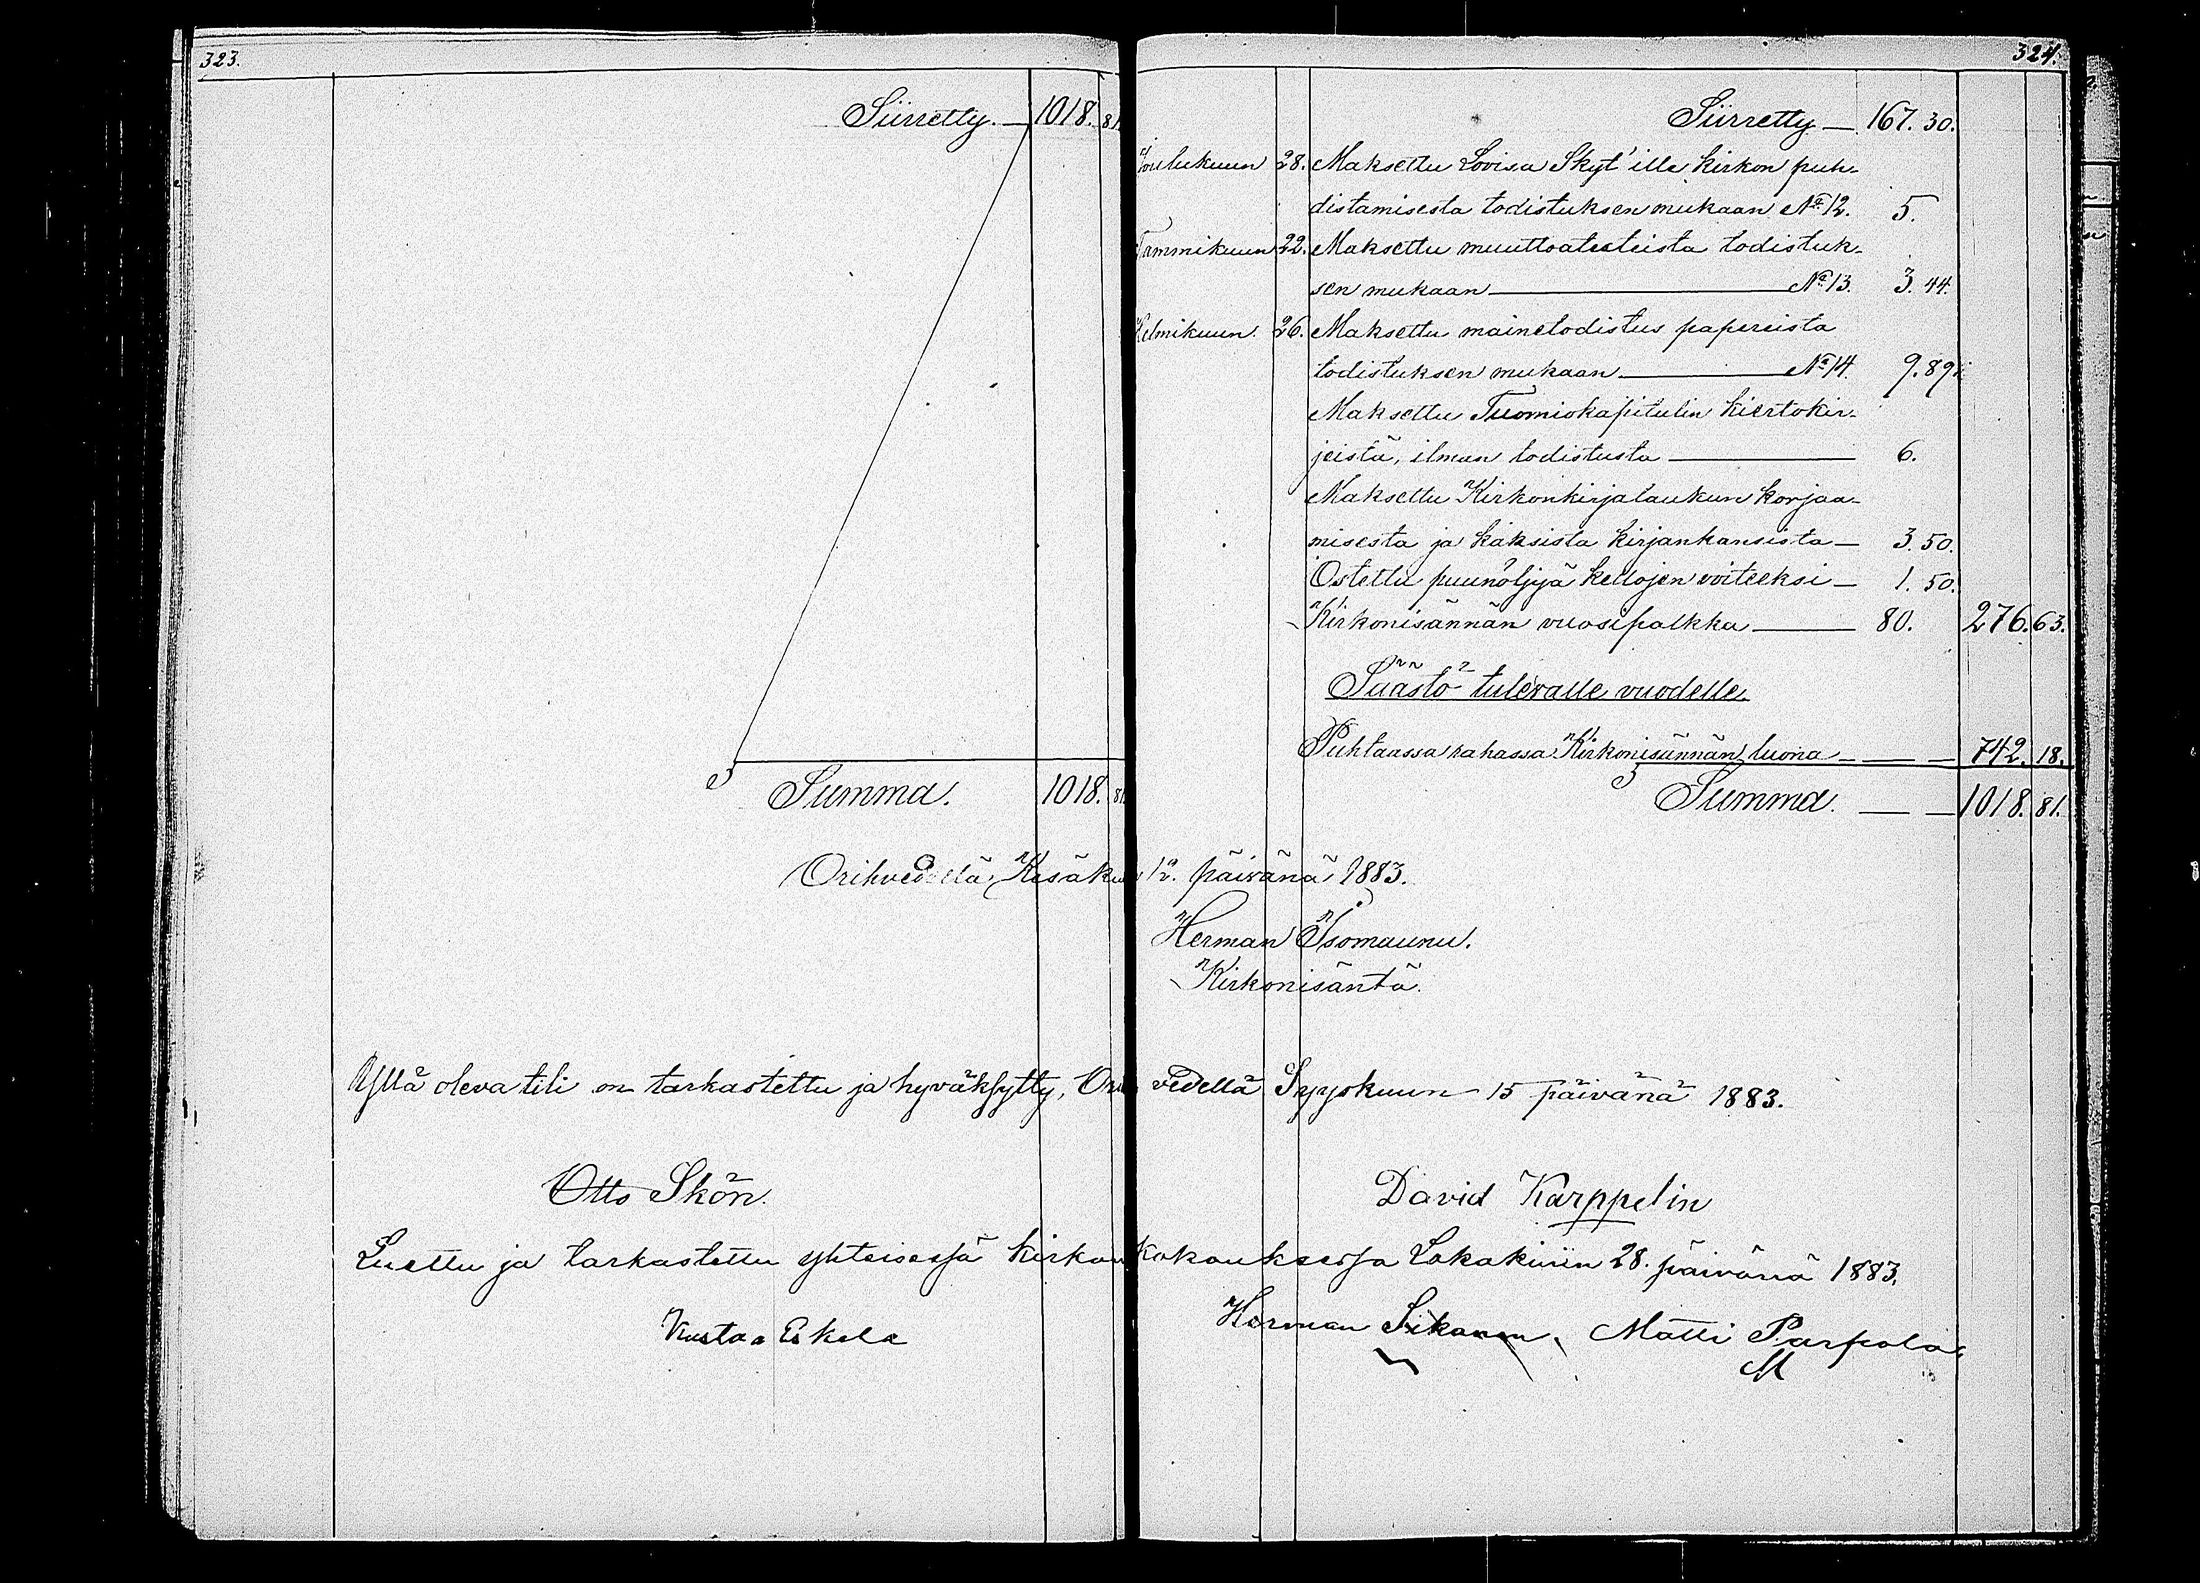 323.
Siirretty. — 1018. 81.
Summa. 1018. 81.
324.
Siirretty — 167. 30.
Joulukuun 28. Maksettu Lovisa Skyt'ille kirkon puh-
distamisesta todistuksen mukaan No 12. 5.
Tammikuun 22. Maksettu muuttoatesteista todistuk-
sen mukaan — No 13. 3. 44.
Helmikuun 26. Maksettu mainetodistus papereista
todistuksen mukaan — No 14. 9. 89.
Maksettu Tuomiokapitulin kiertokir-
jeistä, ilman todistusta — 6.
Maksettu Kirkonkirjalaukun korjaa-
misesta ja kaksista kirjankansista — 3. 50.
Ostettu puunöljyä kellojen voiteeksi — 1. 50.
Kirkonisännän vuosipalkka — 80. 276. 63.
Säästö tulevalle vuodelle.
Puhtaassa rahassa Kirkonisännän luona — 742. 18.
Summa. — 1018. 81.
Orihvedellä, Kesäkuun 12. päivänä 1883.
Herman Isomaunu.
Kirkonisäntä.
Yllä oleva tili on tarkastettu ja hyväksytty, Orihvedellä Syyskuun 15 päivänä 1883.
Otto Skön. David Karppelin
Luettu ja tarkastettu yhteisessä kirkonkokouksessa Lokakuun 28. päivänä 1883.
Kustaa Eskola Herman Sikanen, Matti Parpola